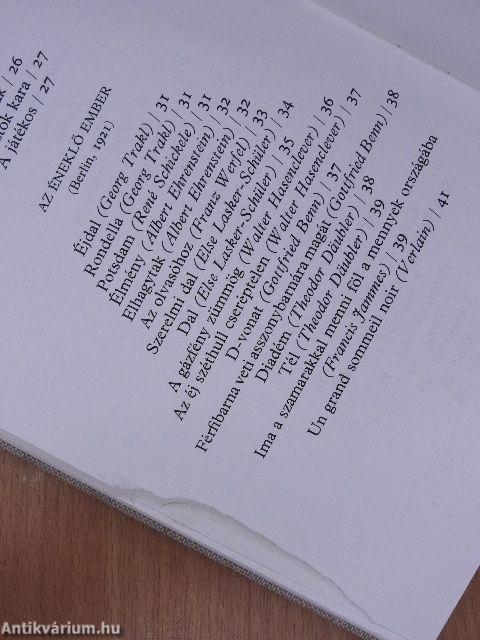 | 26
kara | 27
A játékos | 27
AZ ÉNEKLŐ EMBER
(Berlin, 1921)
Éjdal (Georg Trakl) | 31
Rondella (Georg Trakl) | 31
Potsdam (René Schickele) | 31
Élmény (Albert Ehrenstein) | 32
Elhagyták (Albert Ehrenstein) | 32
Az olvasóhoz (Franz Werfel) | 33
Szerelmi dal (Else Lasker-Schüler) | 34
Dal (Else Lasker-Schüler) | 35
A gázfény zümmög (Walter Hasenclever) | 36
Az éj széthull cseréptelen (Walter Hasenclever) | 37
D-vonat (Gottfried Benn) | 37
Férfibarna veti asszonybarnára magát (Gottfried Benn) | 38
Diadém (Theodor Däubler) | 38
Tél (Theodor Däubler) | 39
Ima a szamarakkal menni föl a mennyek országába
(Francis Jammes) | 39
Un grand sommeil noir (Verlain) | 41
Antikvárium.hu